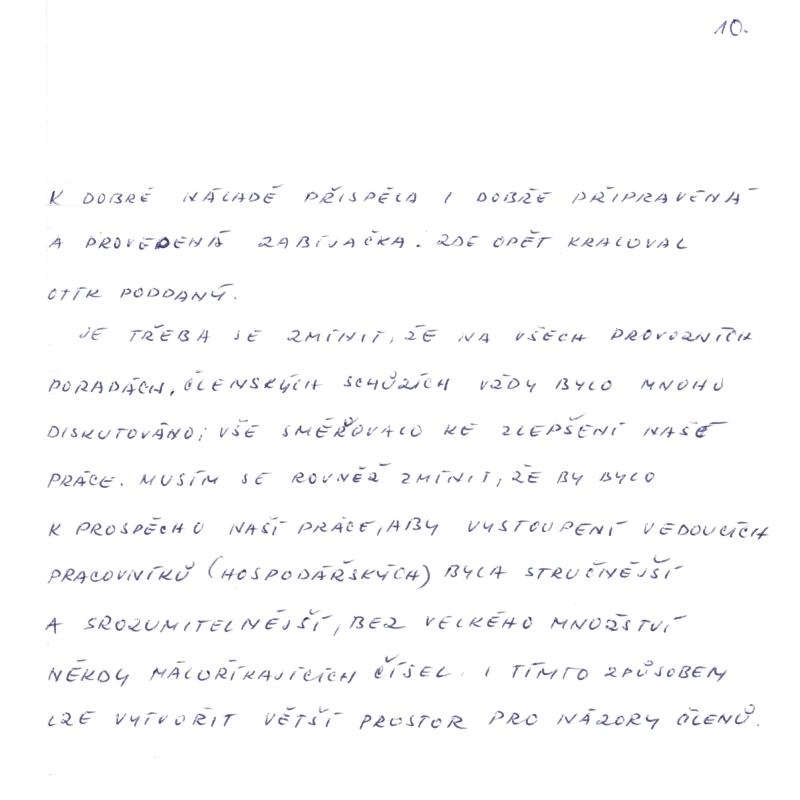 10.
K DOBRÉ NÁLADĚ PŘISPĚLA I DOBŘE PŘIPRAVENÁ
A PROVEDENÁ ZABÍJAČKA. ZDE OPĚT KRALOVAL
OTÍK PODDANÝ.
JE TŘEBA SE ZMÍNIT, ŽE NA VŠECH PROVOZNÍCH
PORADÁCH, ČLENSKÝCH SCHŮZÍCH VŽDY BYLO MNOHO
DISKUTOVÁNO; VŠE SMĚŘOVALO KE ZLEPŠENÍ NAŠÍ
PRÁCE. MUSÍM SE ROVNĚŽ ZMÍNIT, ŽE BY BYLO
K PROSPĚCHU NAŠÍ PRÁCE, ABY VYSTOUPENÍ VEDOUCÍCH
PRACOVNÍKŮ (HOSPODÁŘSKÝCH) BYLA STRUČNĚJŠÍ
A SROZUMITELNĚJŠÍ, BEZ VELKÉHO MNOŽSTVÍ
NĚKDY MÁLOŘÍKAJÍCÍCH ČÍSEL. I TÍMTO ZPŮSOBEM
LZE VYTVOŘIT VĚTŠÍ PROSTOR PRO NÁZORY ČLENŮ.